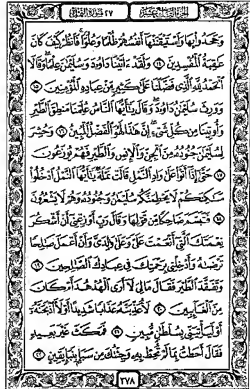 وجحدوا بها واستيقنتها أنفسهم ظلما وعلوا فانظر كيف كان
عقبة المفسدين ولقد ءاتينا داود وسليمن علما وقالا
الحمد لله الذي فضلنا على كثير من عباده المؤمنين
وورث سليمن داود وقال يأيها الناس علمنا منطق الطير
وأوتينا من كل شيء إن هذا لهو الفضل المبين وحشر
لسليمن جنوده من الجن والإنس والطير فهم يوزعون
حتى إذا أتوا على واد النمل قالت نملة يأيها النمل ادخلوا
مسكنكم لا يحطمنكم سليمن وجنوده وهم لا يشعرون
فتبسم ضاحكا من قولها وقال رب أوزعني أن أشكر
نعمتك التي أنعمت علي وعلى ولدي وأن أعمل صلحا
ترضه وأدخلني برحمتك في عبادك الصلحين
وتفقد الطير فقال ما لي لا أرى الهدهد أم كان
من الغائبين لأعذبنه عذابا شديدا أو لأاذبحنه
أو ليأتيني بسلطن مبين فمكث غير بعيد
فقال أحطت بما لم تحط به وجئتك من سبإ بنبإ يقين
٣٧٨